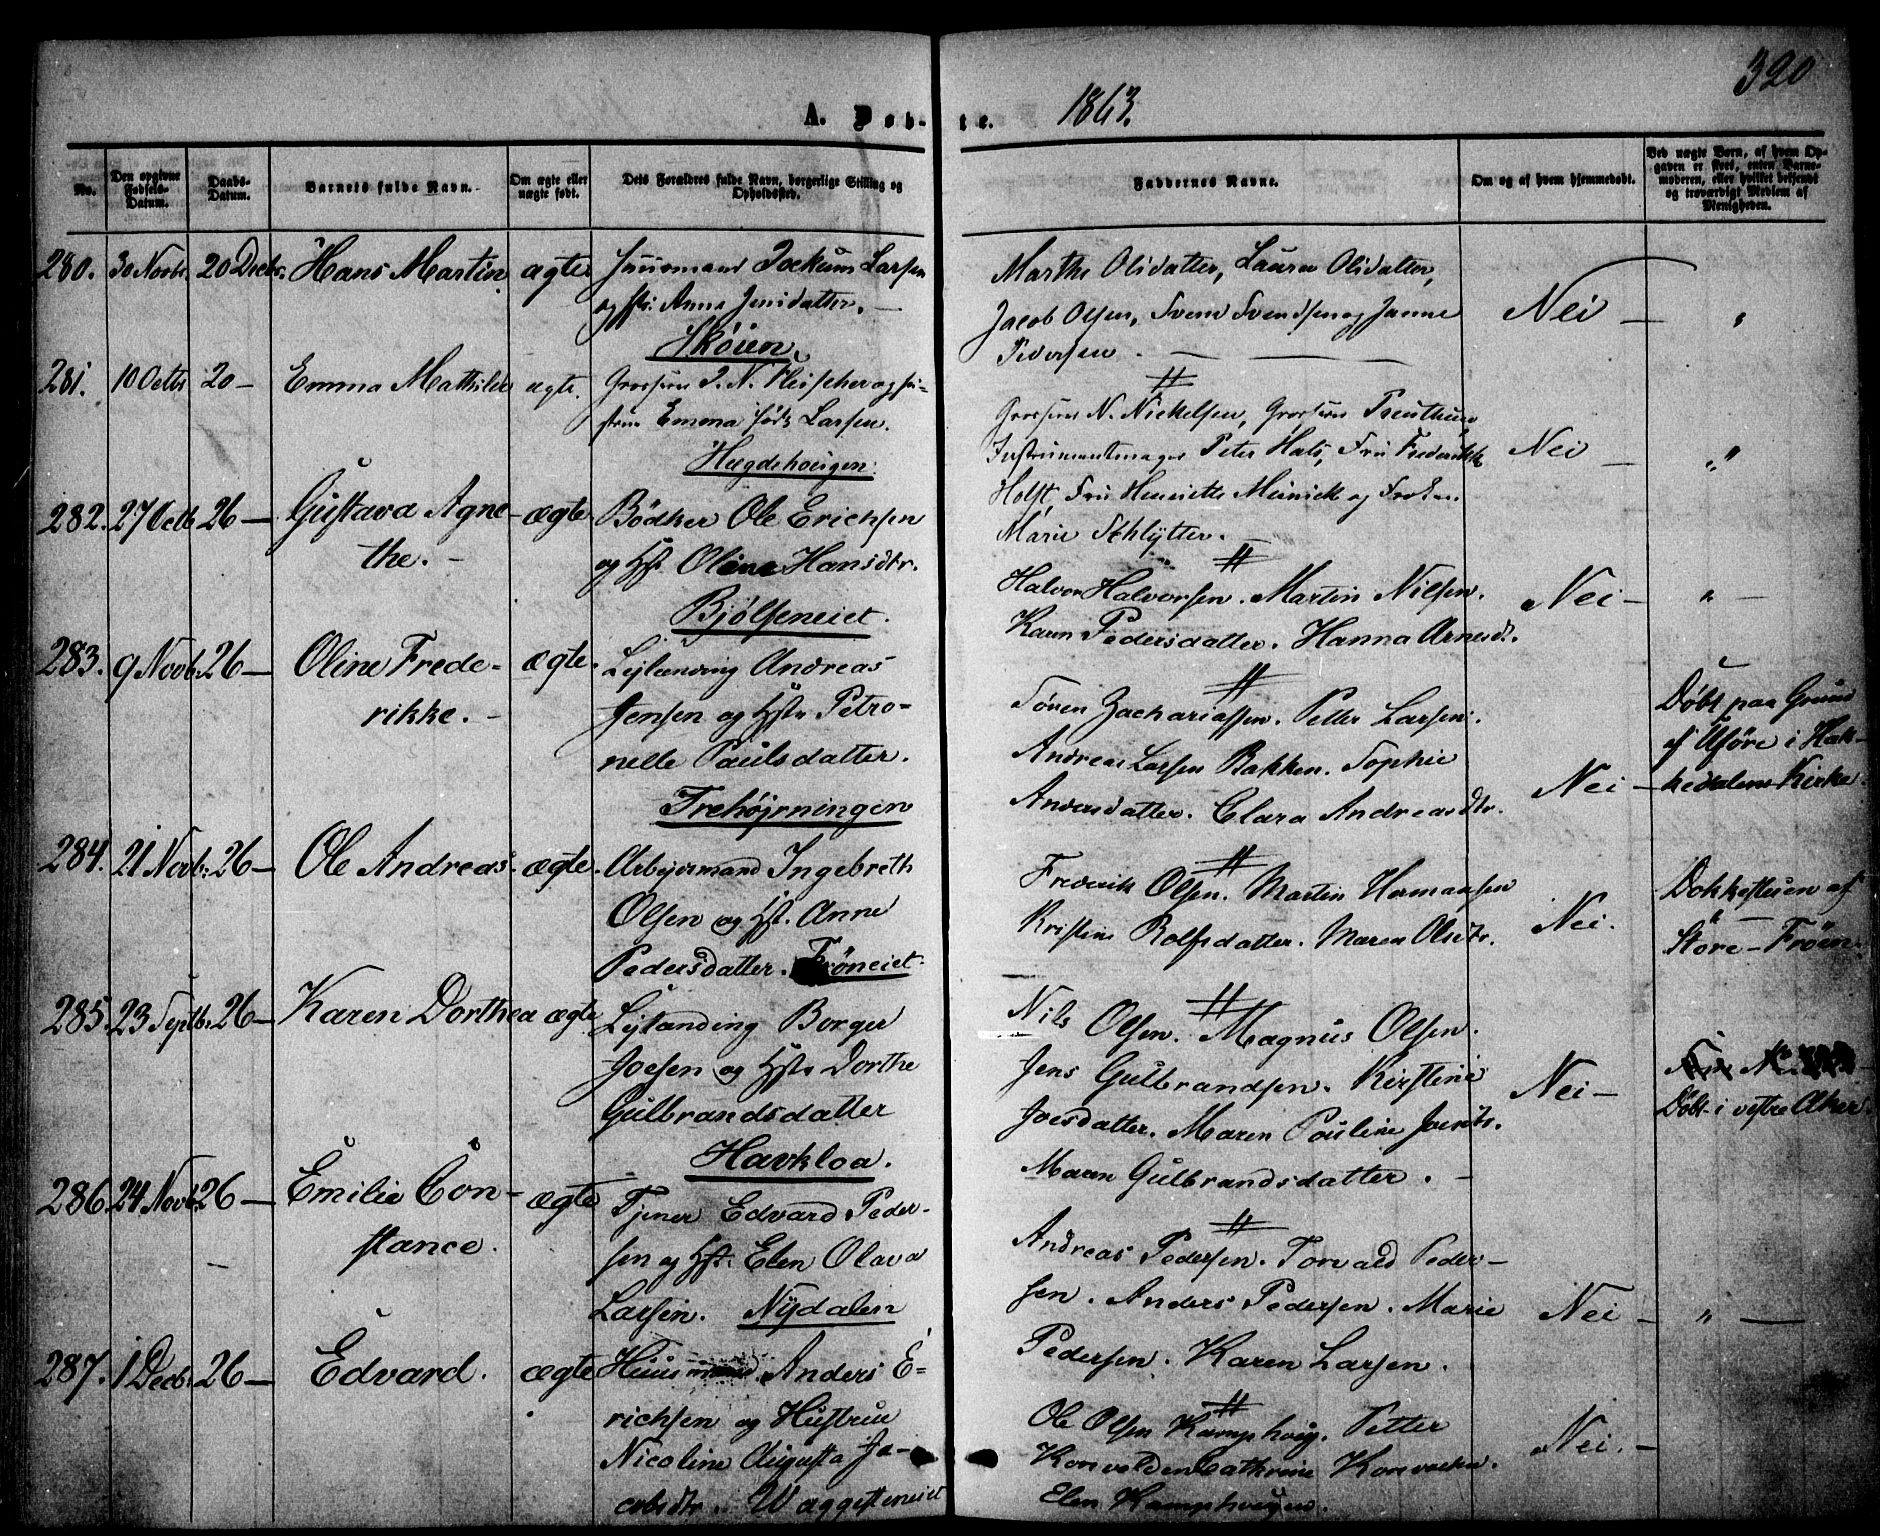 320
A. Døb- te. 1863.
No.
Den opgivne Fødsels-Datum.
Daabs-Datum.
Barnets fulde Navn.
Om ægte eller uægte født.
Dets Forældres fulde Navn, borgerlige Stilling og Opholdssted.
Faddernes Navne.
Om og af hvem hjemmedøbt.
Ved uægte Børn, af hvem Opgaven er skeet, enten Barnemoderen, eller hvilket bekjendt og troværdigt Medlem af Menigheden.
280. 30 Novbr. 20 Decbr. Hans Martin ægte Huusmand Jockum Larsen
og Hst. Anne Jensdatter. —
Skøien
Marthe Olsdatter, Laura Olsdatter,
Jacob Olsen, Svend Svendsen og Janne
Pedersen. —
Nei — "
281. 10 Octbr 20 — Emma Mathilde ægte. Grosserer J. N. Fleischer og Hu-
stru Emma født Larsen.
Hægdehougen
Grosserer N. Nickelsen, Grosserer
Instrumentmager Peter Hals, Fru Frederikke
Holst, Fru Henriette Meinich og Frøken
Marie Schlytter. —
Nei — "
282. 27 Octb 26 — Gustava Agne- ægte
the. —
Bødker Ole Erichsen
og Hst. Oline Hansdtr.
Bjølseneiet.
Halvor Halvorsen. Martin Nilsen.
Karen Pedersdatter. Hanna Arnesdt.
Nei — " —
283. 9 Novb. 26 — Oline Frede- ægte.
rikke. —
Lejlænding Andreas
Jensen og Hst. Petro-
nelle Paulsdatter.
Trehøjrningen
Søren Zachariassen. Petter Larsen.
Andreas Larsen Bakken. Sophie
Andersdatter. Clara Andreasdtr.
Nei —
Døbt paa Grund
af Uføre i Hak-
kedalens Kirke.
284. 21 Novb. 26 — Ole Andreas. ægte. Arbejdsmand Ingebreth
Olsen og Hst. Anne
Pedersdatter. Frøneiet.
Frederik Olsen. Martin Hermansen
Kristine Rolfsdatter. Maren Olsdtr.
Nei.
Dokkestuen af
Store-Frøen.
285. 23 Septb. 26 — Karen Dorthea ægte Lejlænding Borger
Joesen og Hst. Dorthe
Gulbrandsdatter
Havkloa.
Nils Olsen. Magnus Olsen.
Jens Gulbrandsen. Kirstine
Joesdatter. Maren Pauline Joesdtr.
Maren Gulbrandsdatter. —
Nei —
Døbt i vestre Aker.
286. 24 Novb. 26 — Emilie Con- ægte
stance.
Tjener Edvard Peder-
sen og Hst. Elen Olava
Larsen. Nydalen
Andreas Pedersen. Torvald Peder-
sen. Anders Pedersen. Marie
Pedersen. Karen Larsen.
Nei — " —
287. 1 Decb. 26 — Edvard. ægte Huusmand Anders E-
richsen og Hustrue
Nicoline Augusta Ja-
cobsdtr. Waggesteneiet
Ole Olsen Kamphoug. Petter
Cathrine
Elen Kamphougen.
Nei. —